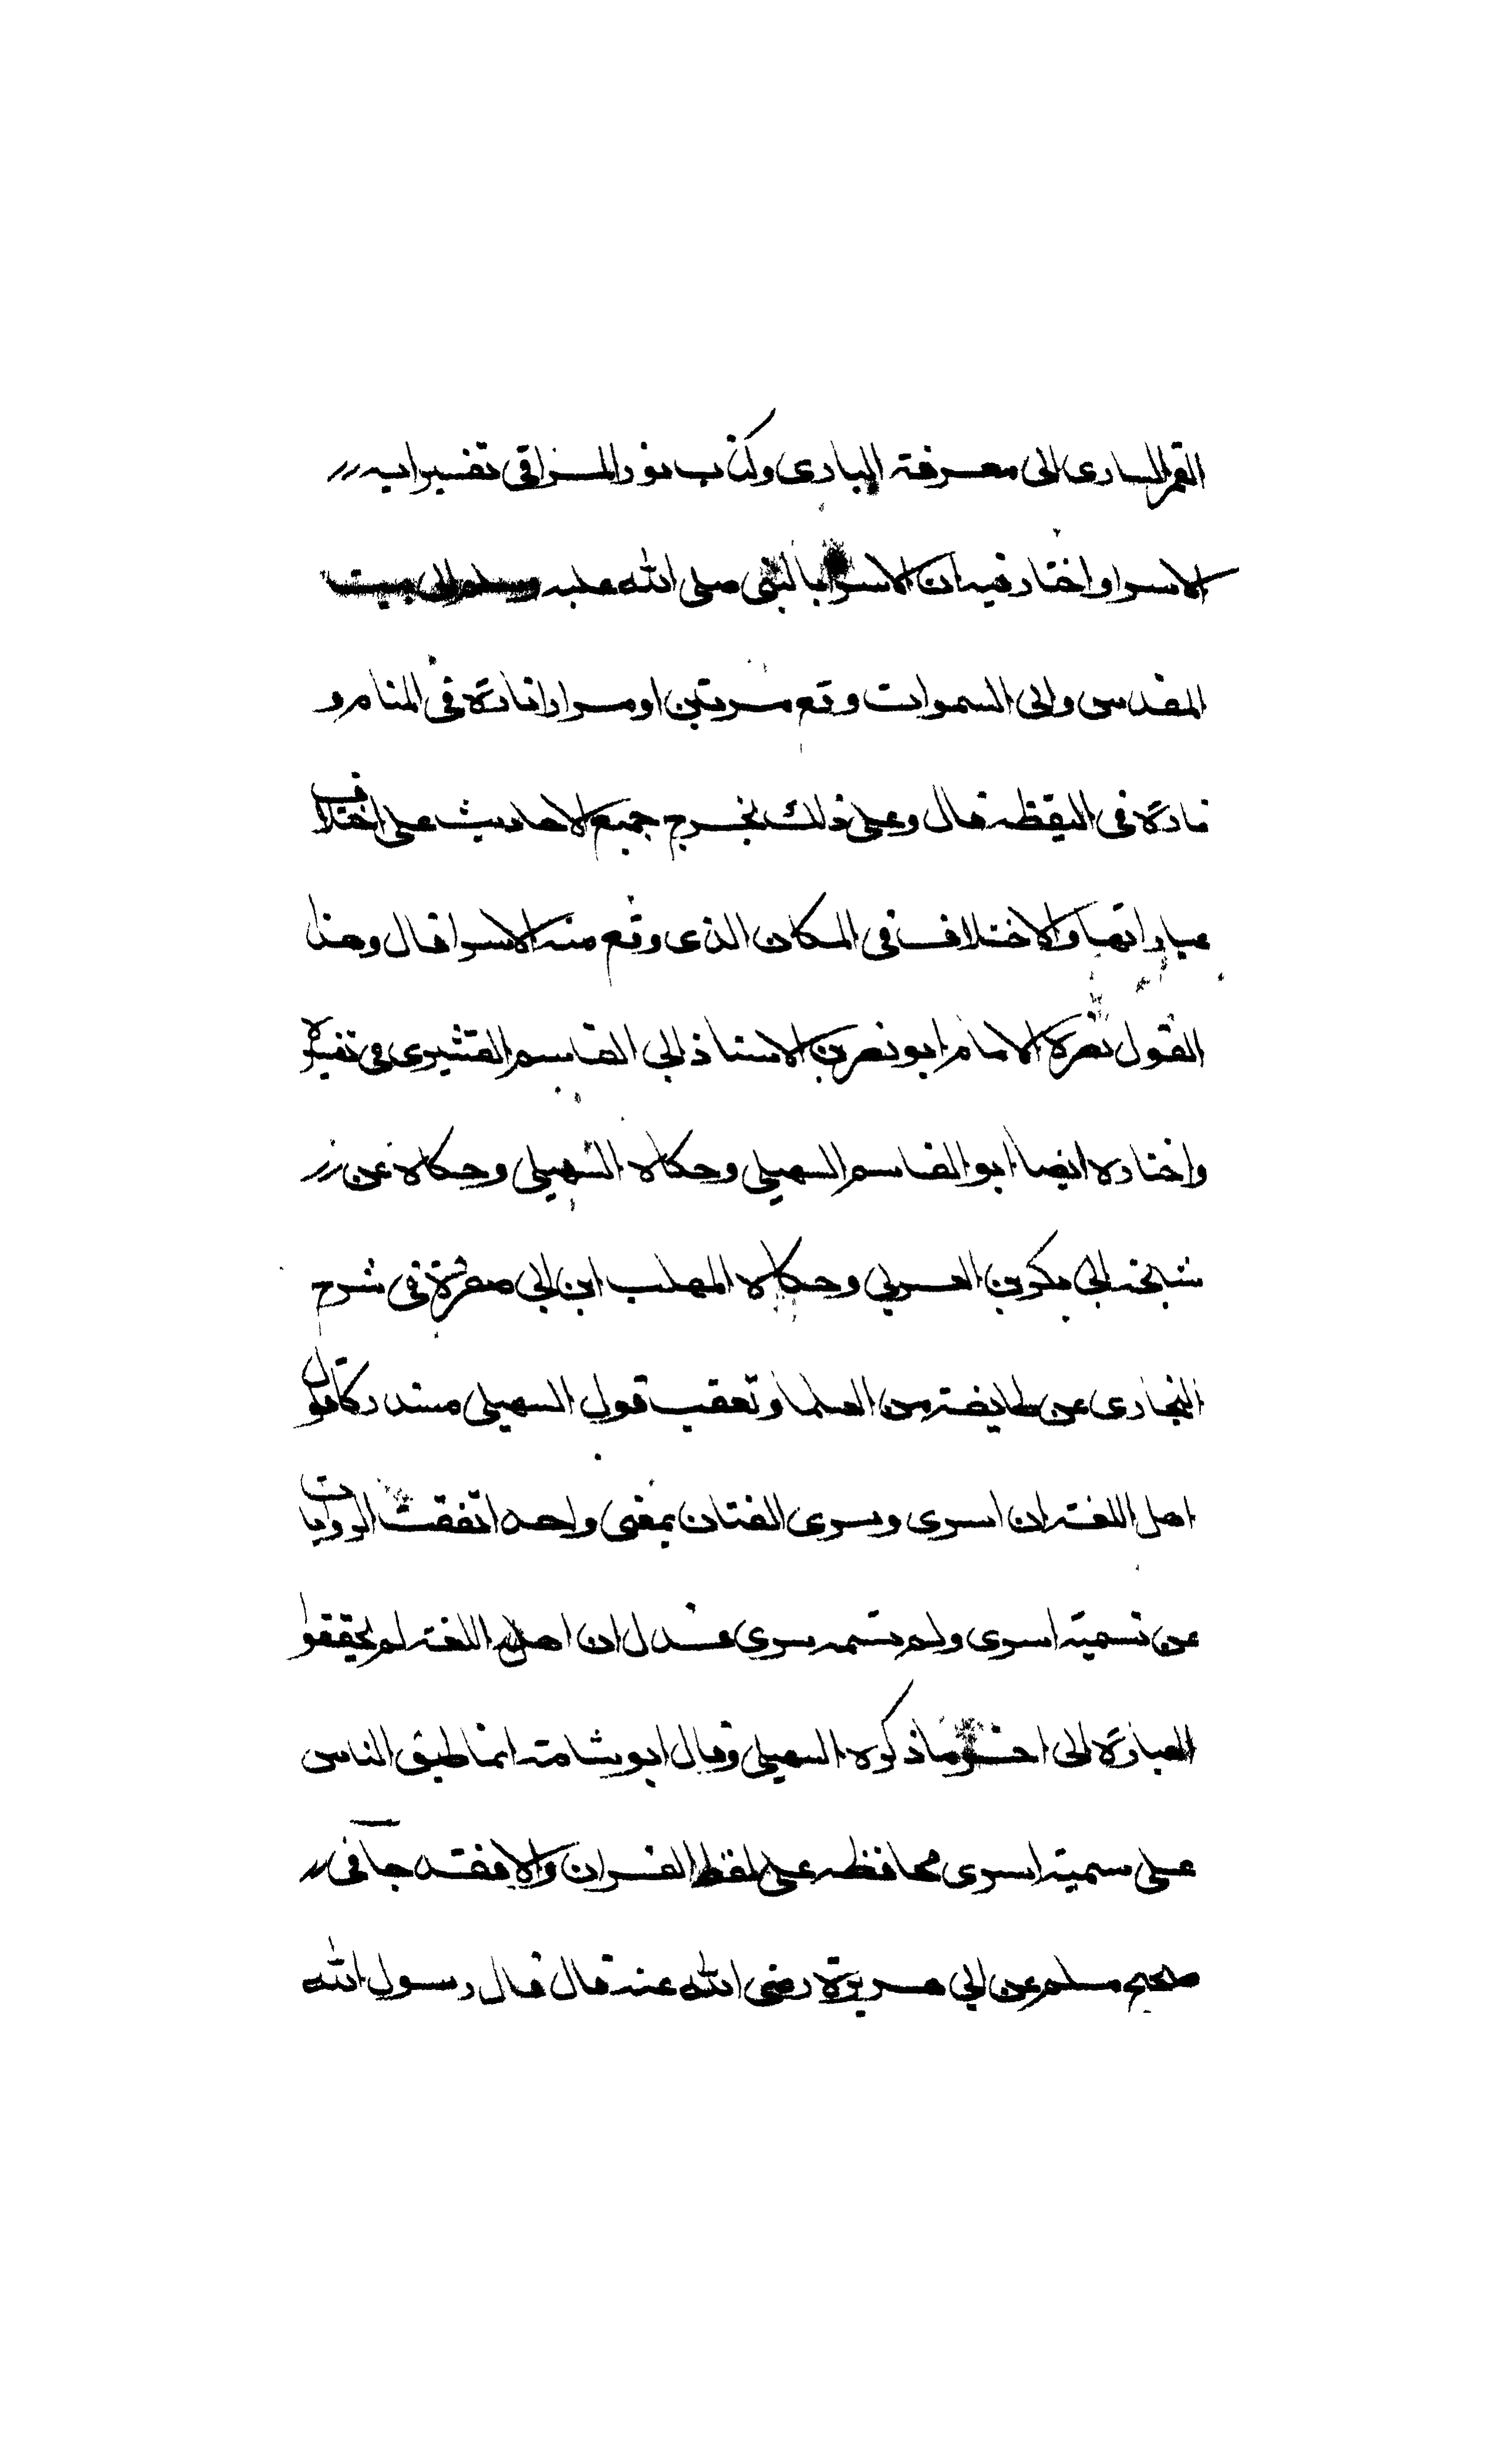 القمر السارى الى معرفة البارى وكتاب نور المسراقى تفسير ايه
الاسرا واختار فيه ان الاسرا بالنبى صلى الله عليه وسلم الى بيت
المقدس والى السموات وقع مرتين او مرارا تارة فى المنام و
تارة فى اليقظه قال وعلى ذلك تخرج جميع الاحاديث على اختلاف
عباراتها والاختلاف فى المكان الذى وقع منه الاسرا قال وهذا
القول نصره الامام ابو نصر بن الاستاذ ابى القاسم القشيرى فى تفسيره
واختاره ايضا ابو القاسم السهيلى وحكاه السهيلى وحكاه عن
شيخه ابى بكر بن العربى وحكاه المهلب ابن ابى صفرة فى شرح
البخارى عن طايفة من العلما وتعقب قول السهيلى مستدركا قول
اهل اللغة ان اسرى وسرى لغتان بمعنى واحد اتفقت الروايات
عن تسمية اسرى ولم تسمه سرى فدل ان اهل اللغة لم يحققوا
العبارة الى اخر ما ذكره السهيلى وقال ابو شامة انما طبق الناس
على سمية اسرى محافظه على لفظ القران والا فقد جا فى
صحيح مسلم عن ابى هريرة رضى الله عنه قال قال رسول الله